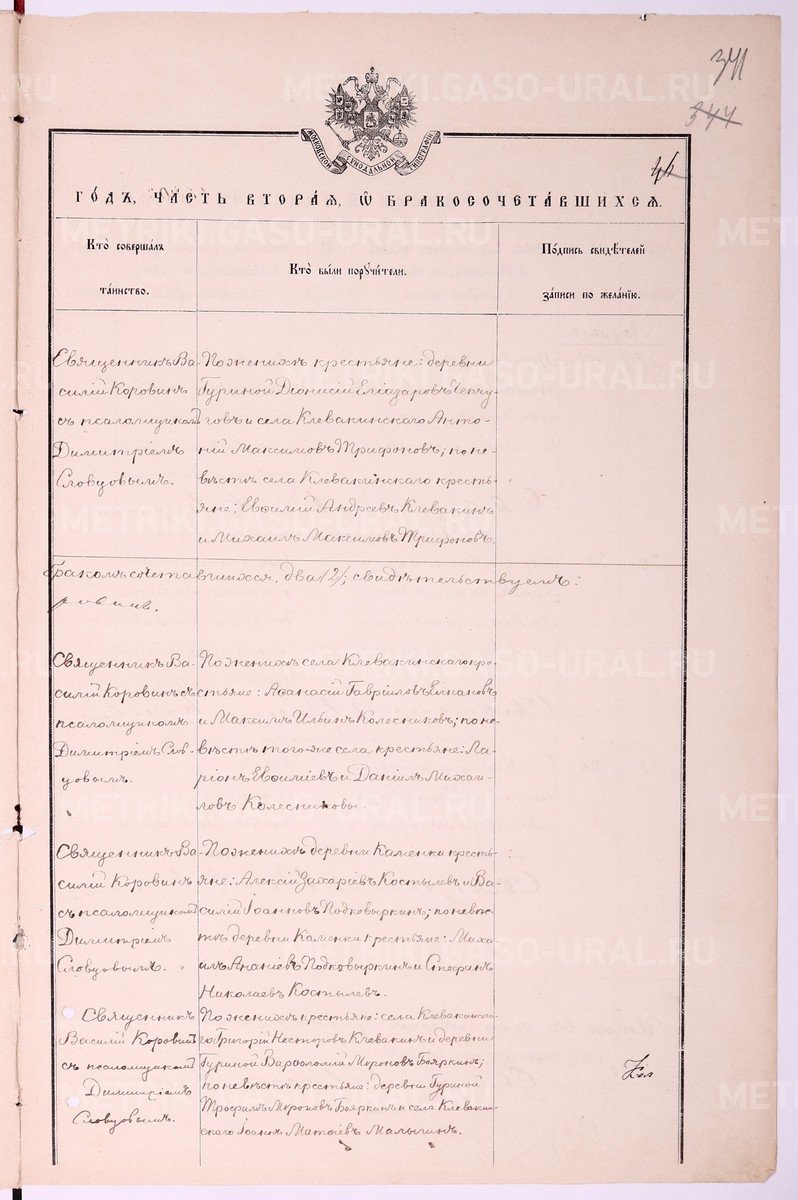 341
344
МОСКОВСКОЙ СѴНОДАЛЬНОЙ ТИПОГРАФІИ
ГОДЪ, ЧАСТЬ ВТОРАЯ, Ѡ БРАКОСОЧЕТАВШИХСЯ.
Кто совершалъ
таинство.
Кто были поручители.
Подпись свидѣтелей
записи по желанію.
Священникъ Ва-
силій Коровинъ
съ псаломщикомъ
Димитріемъ
Словцовымъ.
По женихѣ крестьяне: деревни
Гуриной Діонисій Еліазаровъ Чепчу-
говъ и села Клевакинскаго Анто-
ній Максимовъ Трифоновъ; по не-
вѣстѣ села Клевакинскаго кресть-
яне: Евѳимій Андреевъ Клевакинъ
и Михаилъ Максимовъ Трифоновъ.
бракомъ сочетавшихся, два /2/; свидѣтельствуемъ:
Священникъ Ва-
силій Коровинъ съ
псаломщикомъ
Димитріемъ Слов-
цовымъ.
По женихѣ села Клевакинскаго кре-
стьяне: Аѳанасій Гавріиловъ Епановъ
и Максимъ Ильинъ Колесниковъ; по не-
вѣстѣ того-же села крестьяне: Ла-
ріонъ Евѳиміевъ и Даніилъ Михаи-
ловъ Колесниковы.
Священникъ Ва-
силій Коровинъ
съ псаломщикомъ
Димитріемъ
Словцовымъ.
По женихѣ деревни Каменки кресть-
яне: Алексій Захаріевъ Костылевъ и Ва-
силій Іоанновъ Подковыркинъ; по невѣс-
тѣ деревни Каменки крестьяне: Миха-
илъ Ананіевъ Подковыркинъ и Стефанъ
Николаевъ Костылевъ.
Священникъ
Василій Коровинъ
съ псаломщикомъ
Димитріемъ
Словцовымъ.
По женихѣ крестьяне: села Клевакинска-
го Григорій Несторовъ Клевакинъ и деревни
Гуриной Варѳоломій Мироновъ Бояркинъ;
по невѣстѣ крестьяне: деревни Гуриной
Трофимъ Мироновъ Бояркинъ и села Клеваки-
скаго Іоаннъ Матѳіевъ Малыгинъ.
METRIKI.GASO-URAL.RU